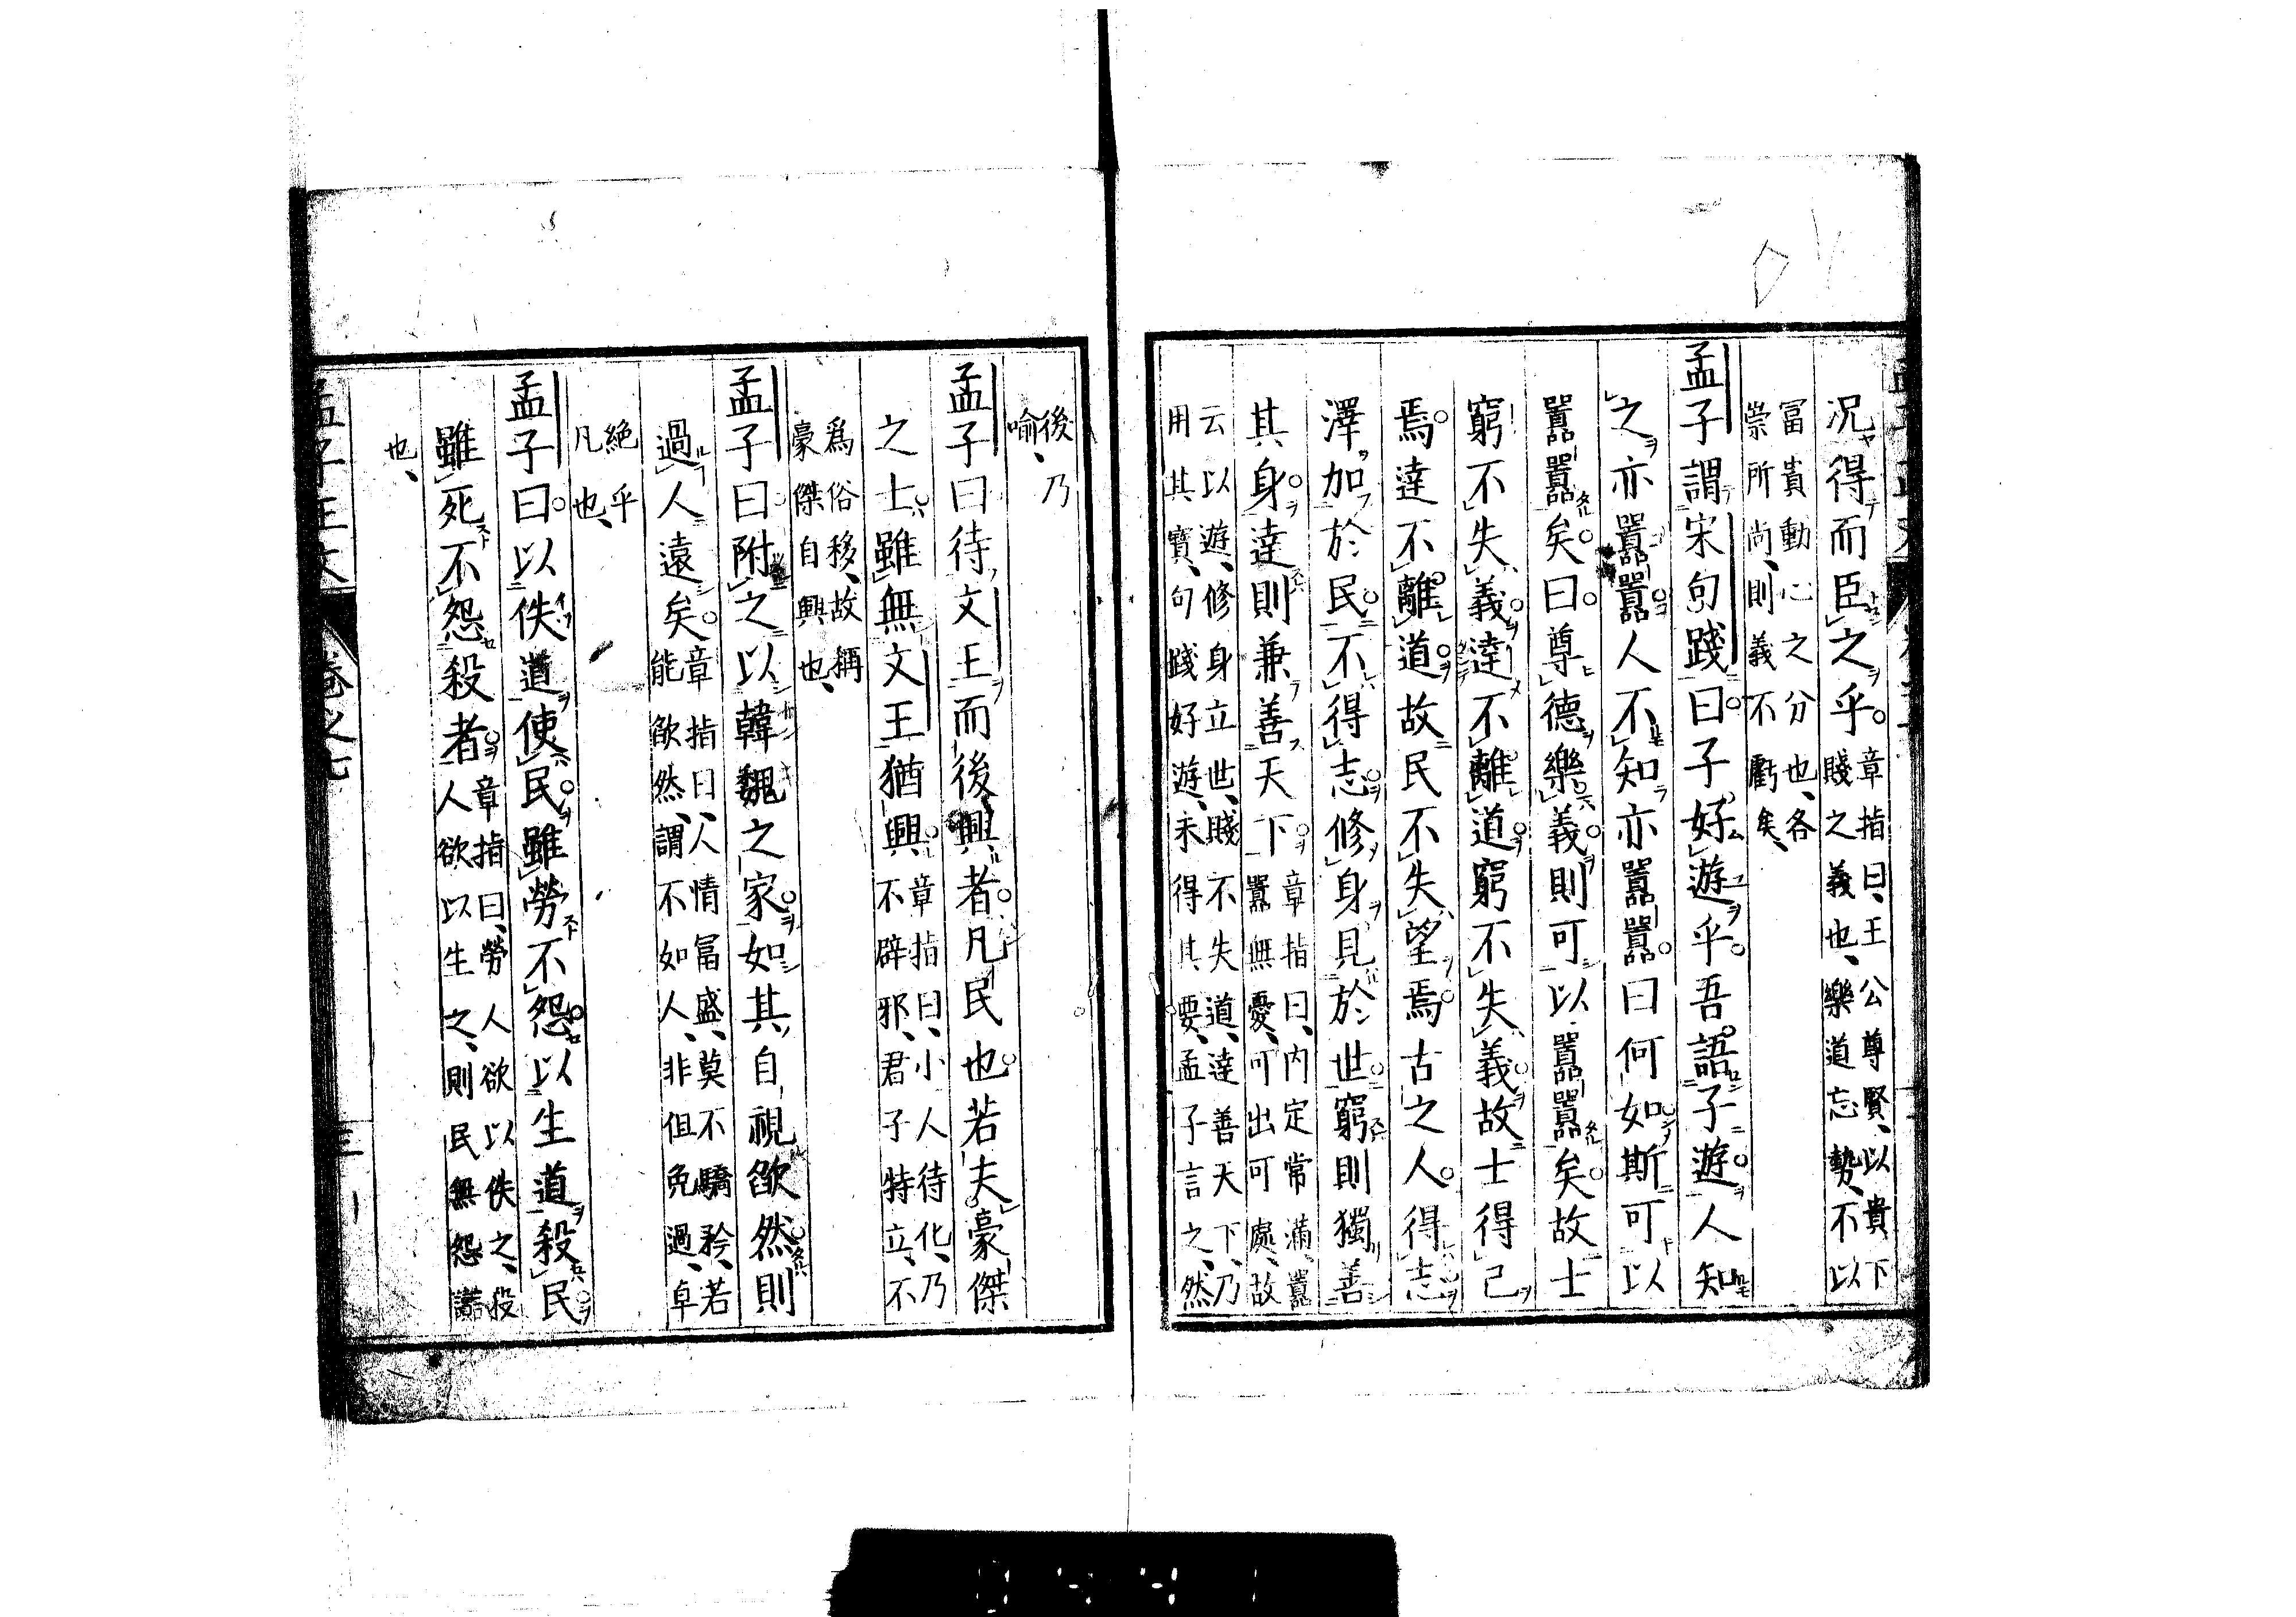 况得而臣之乎。章指曰、王公尊賢、以貴下
賤之義也、樂道忘勢、不以
冨貴動心之分也、各
崇所尚、則義不虧矣、
孟子謂宋句踐曰子好遊乎。吾語子遊人知
之亦囂囂人不知亦囂囂。曰何如斯可以
囂囂矣。曰尊德樂義則可以囂囂矣。故士
窮不失義達不離道窮不失義故士得己
焉達不離道故民不失望焉。古之人得志
澤加於民不得志修身見於世窮則獨善
其身達則兼善天下章指曰、内定常滿、囂
囂無憂、可出可處、故
云以遊、修身立世、賤不失道、達善天下、乃
用其寶、句踐好遊、未得其要、孟子言之、然
後乃
喻、
孟子曰待文王而後興者凡民也。若夫豪傑
之士雖無文王猶興章指曰、小人待化、乃
不辟邪、君子特立、不
爲俗移、故稱
豪傑自興也、
孟子曰附之以韓魏之家如其自視欿然則
過人遠矣。章指曰、人情冨盛、莫不驕矜、若
能欿然、謂不如人、非但免過、卓
絶乎
凡也、
孟子曰以佚道使民雖勞不怨以生道殺民
雖死不怨殺者章指曰、勞人欲以佚之、殺
人欲以生之、則民無怨讟
也、
孟子正文 卷之七 三